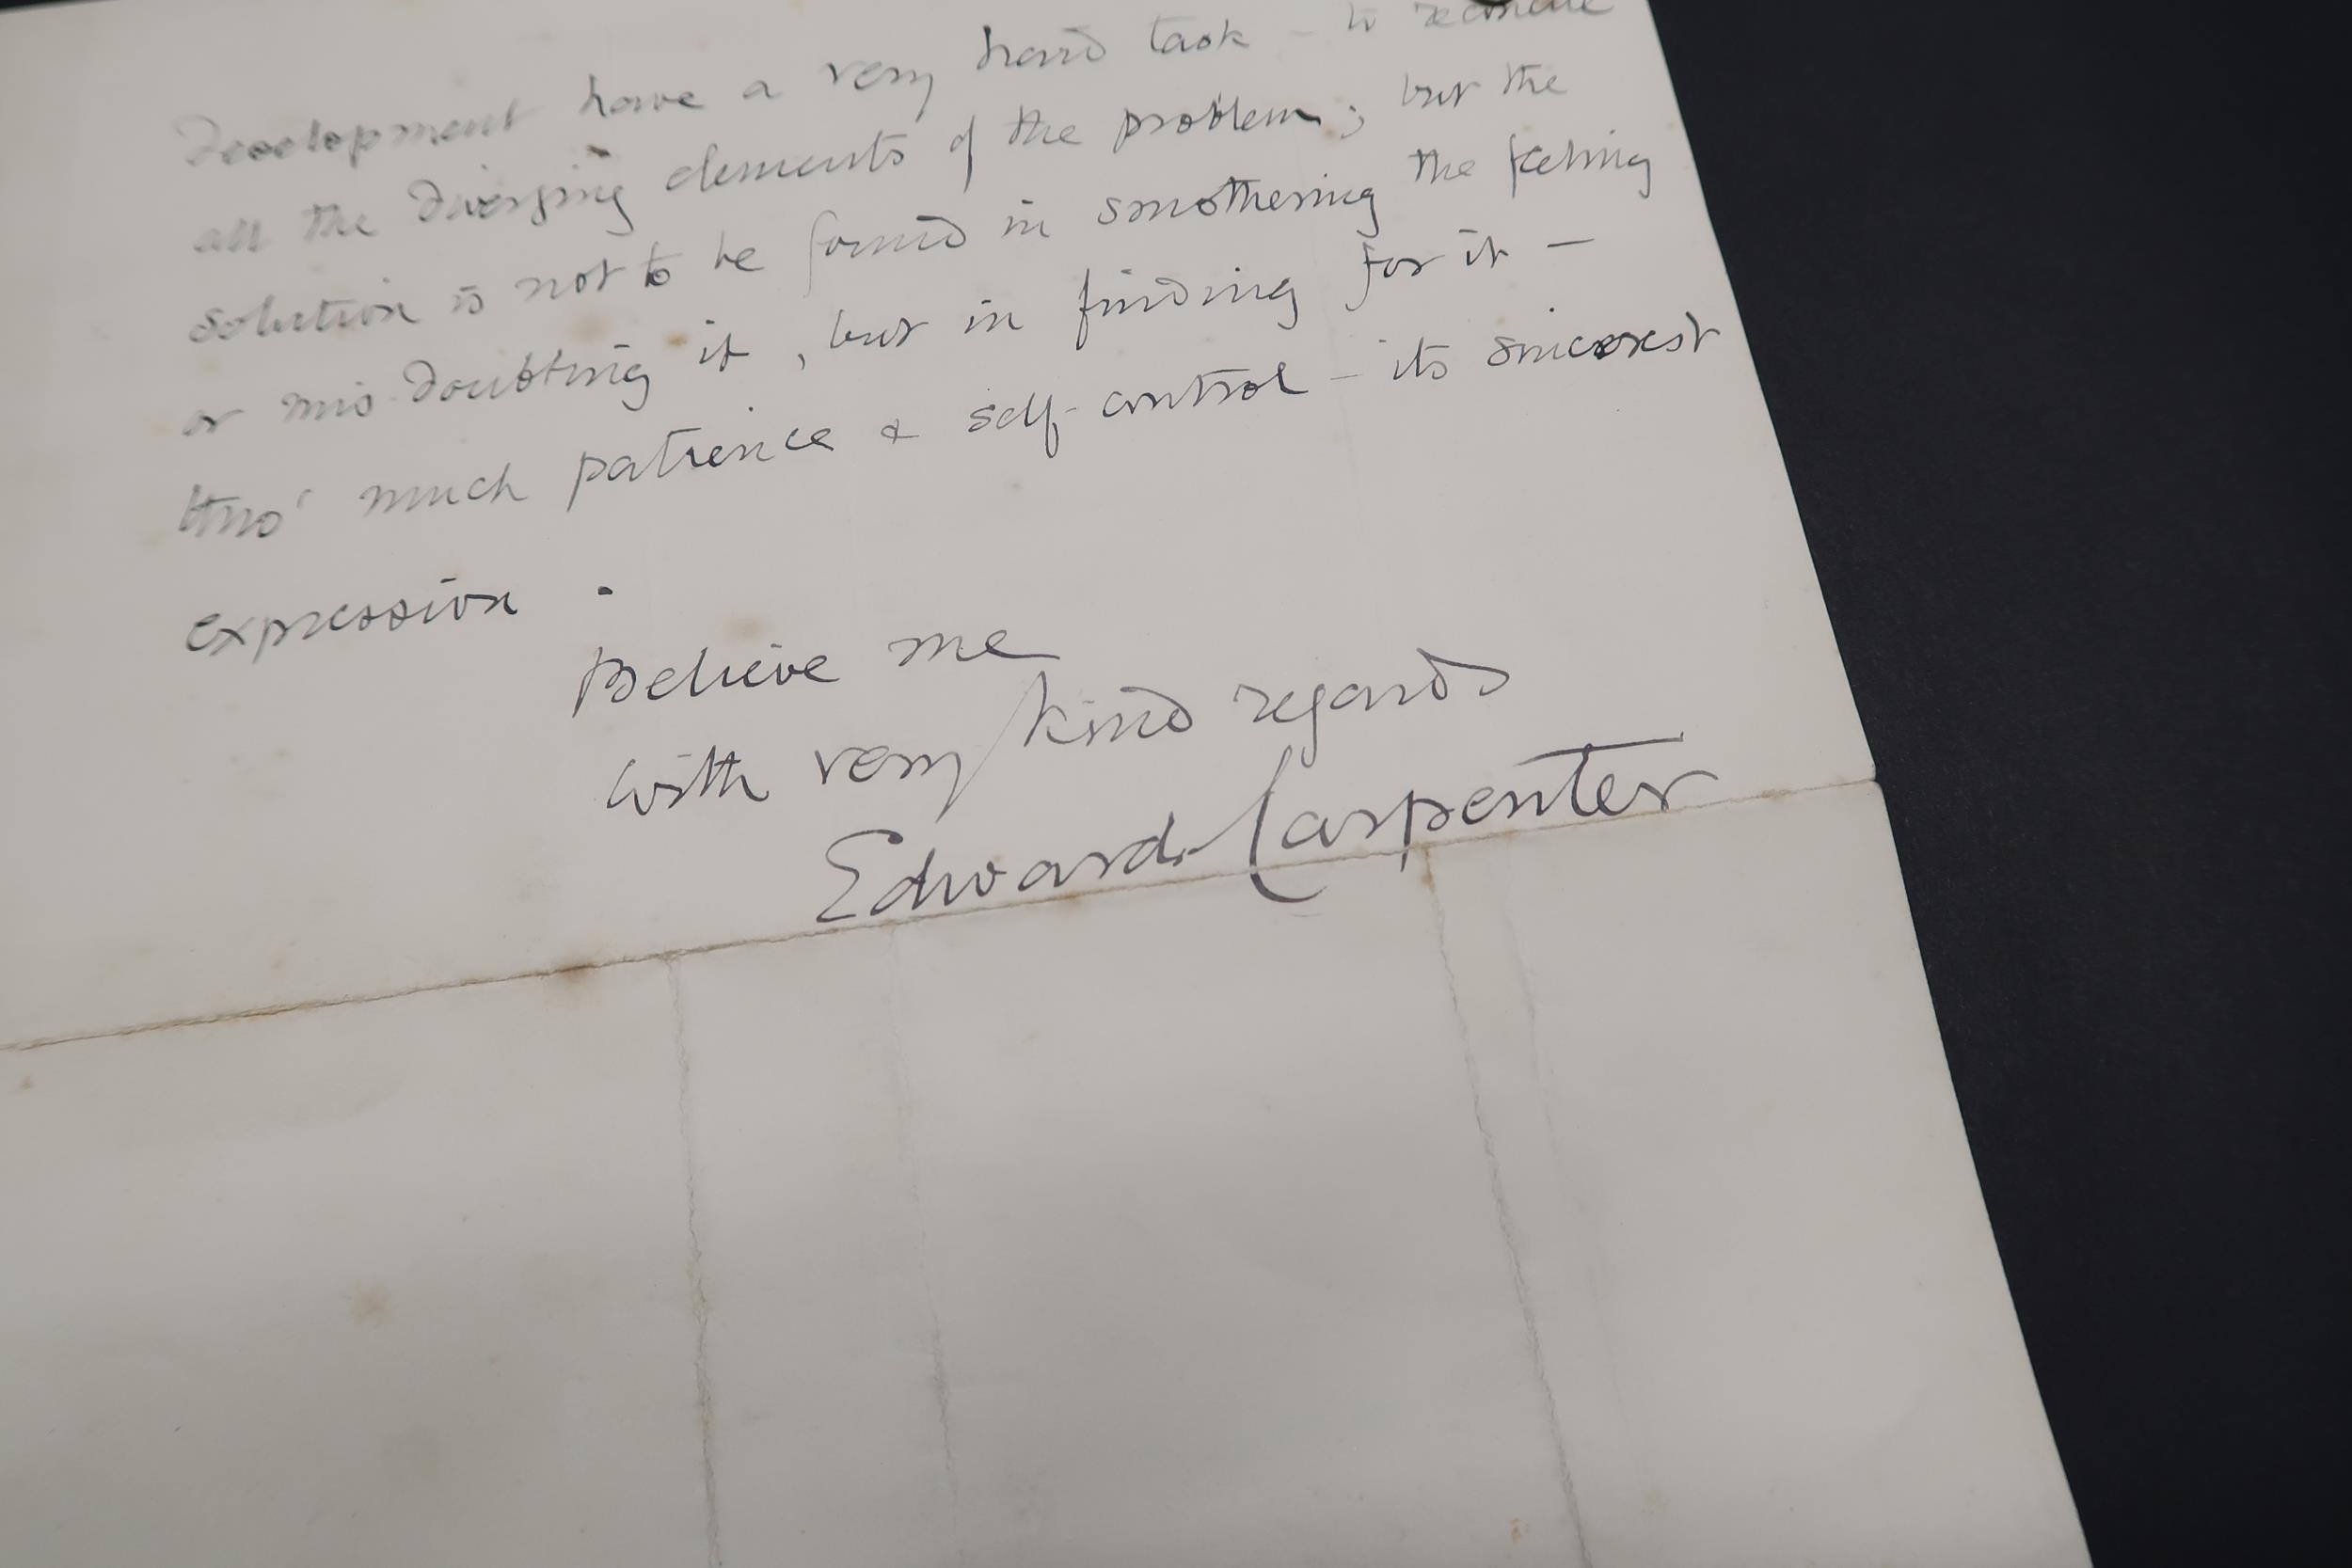 Development have a very hard task – to reconcile
all the diverging elements of the problem; but the
solution is not to be found in smothering the feeling
or mis-doubting it, but in finding for it –
thro' much patience & self-control – its sincerest
expression.
Believe me
with very kind regards
Edward Carpenter